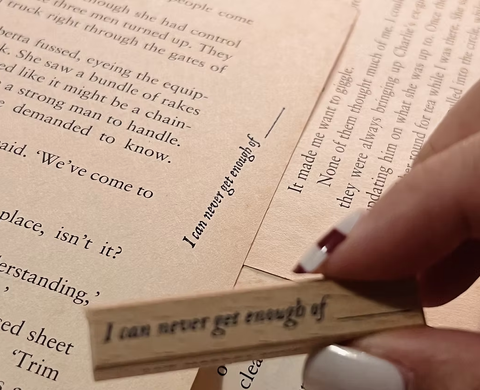 people come
though she had control
three men turned up. They
truck right through the gates of
betta fussed, eyeing the equip-
k. She saw a bundle of rakes
ed like it might be a chain-
a strong man to handle.
demanded to know.
said. ‘We’ve come to
place, isn’t it?
erstanding,’
’
sed sheet
‘Trim
I can never get enough of ____
It made me want to giggle.
None of them thought much of me. I
they were always bringing up Charlie's
pdating him on what she was up to. Once
her round for tea while I was there. She
lled into the circle,
clea
I can never get enough of ____